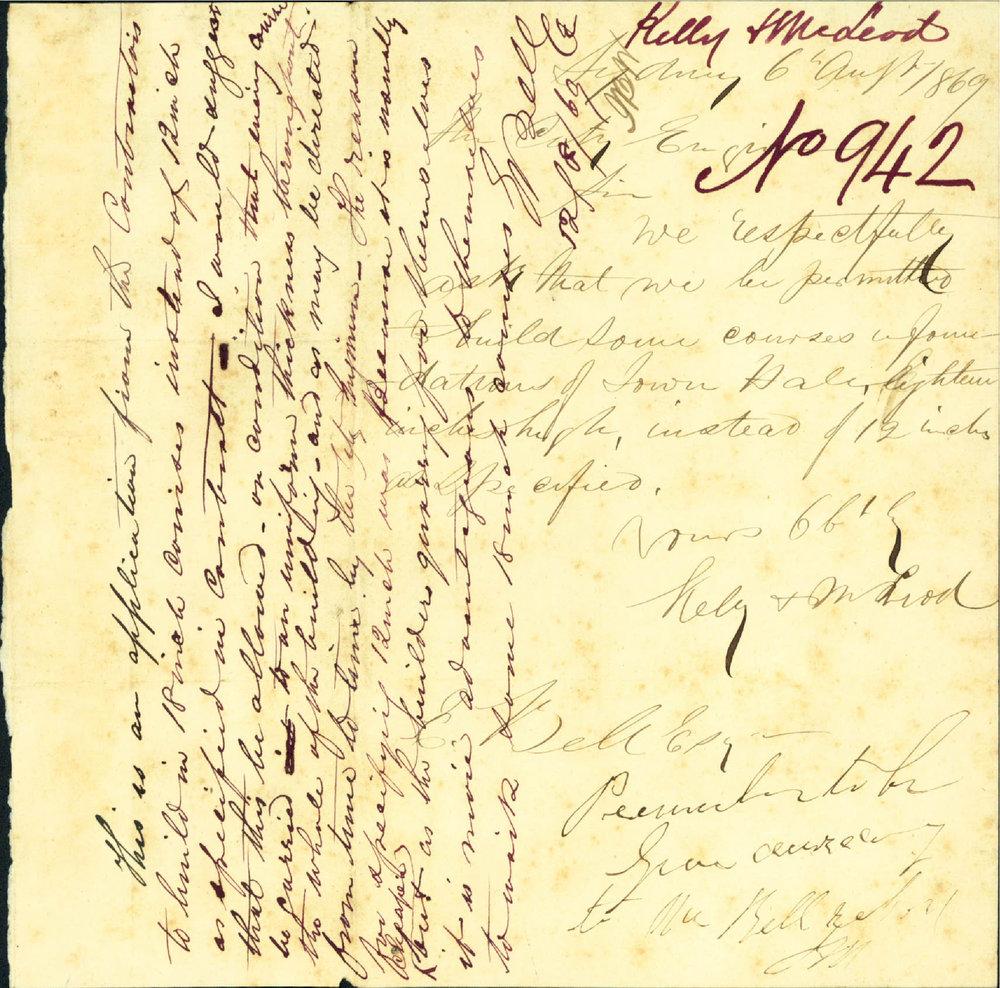 Kelly & McLeod
Sydney 6th Augt 1869
No 942
The City Engineer
Sir
We respectfully
ask that we be permitted
to build some courses in foun-
dations of Town Hall, Eighteen
inches high, instead of 12 inches
as specified.
Yours Obtly
Kelly & McLeod
E. Bell Esqr
Permission to be
given according
to Mr Bell
This is an application from the Contractors
to build in 18 inch courses instead of 12 inch
as specified in Contract - I would suggest
that this be allowed - on condition that every course
be carried to an uniform thickness throughout
the whole of the building - and as may be directed
from time to time by the City Engineer - The reason
for specifying 12 inch was because it is usually
cheaper
but as the builders quarry for themselves
it is more advantageous to themselves
to work some 18 inch courses
E Bell
CE
12/8/69